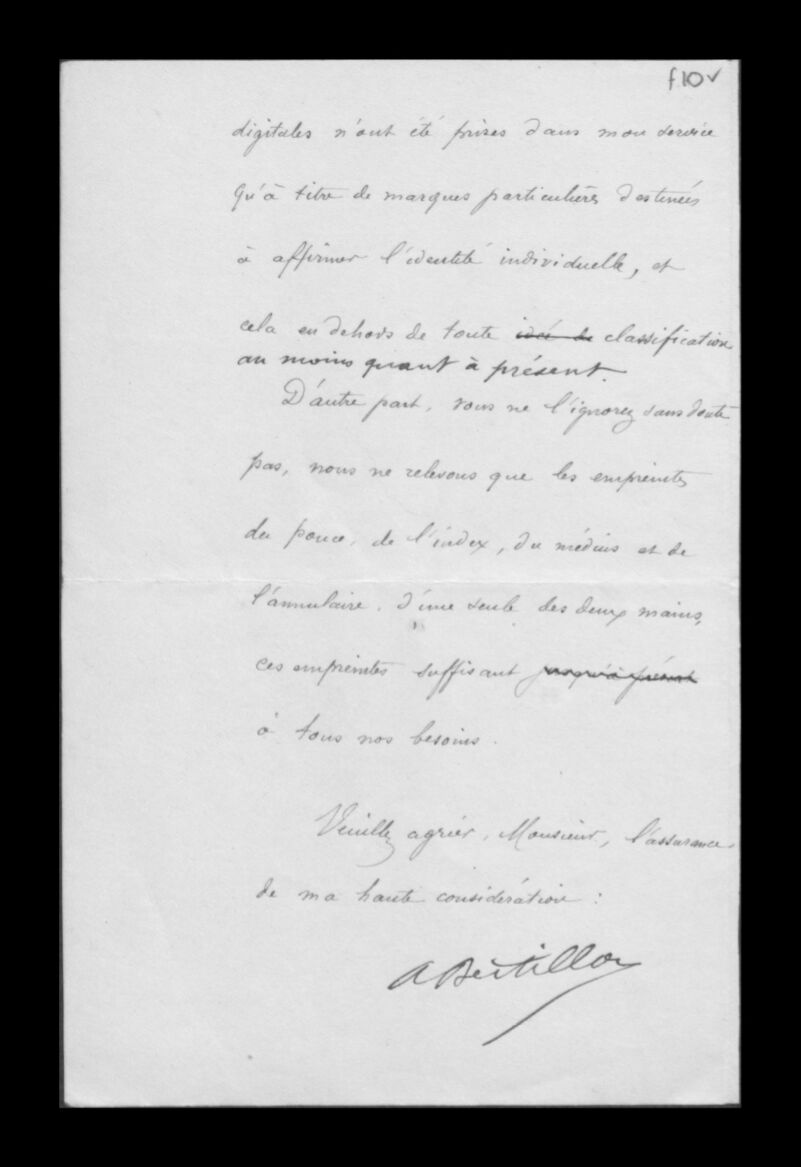 f10v
digitales n'ont été prises dans mon service
qu'à titre de marques particulières destinées
à affirmer l'identité individuelle, et
cela en dehors de toute idée de classification
au moins quant à présent.
D'autre part, vous ne l'ignorez sans doute
pas, nous ne relevons que les empreintes
du pouce, de l'index, du médius et de
l'annulaire, d'une seule des deux mains,
ces empreintes suffisant jusqu'à présent
à tous nos besoins.
Veuillez agréer, Monsieur, l'assurance
de ma haute considération :
A Bertillon